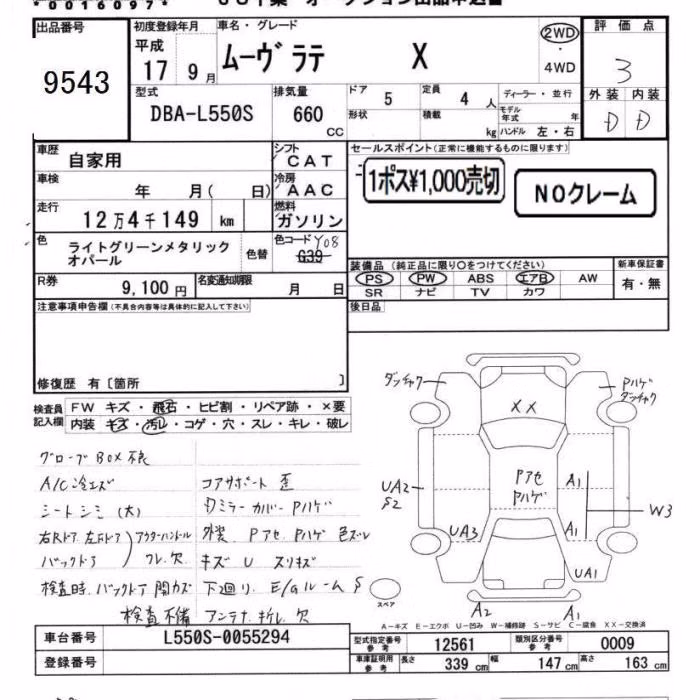 *0016097*
出品番号
9543
初度登録年月
平成
17 9月
車名・グレード
ムーヴラテ X
2WD
・
4WD
評価点
3
外装 内装
D D
型式
DBA-L550S
排気量
660
CC
ドア
5
形状
定員
4人
積載
kg
ディーラー・並行
モデル年式 年
ハンドル 左・右
車歴
自家用
シフト
CAT
車検
年 月( 日)
冷房
AAC
走行
12万4千149 km
燃料
ガソリン
色
ライトグリーンメタリック
オパール
色替
色コード Y08
G39
R券
9,100円
名変通知期限
月 日
セールスポイント(正常に機能するものに限ります)
1ポス¥1,000売切
NOクレーム
装備品 (純正品に限り○をつけてください)
PS PW ABS エアB AW
SR ナビ TV カワ
新車保証書
有・無
後日品
注意事項申告欄(不具合内容等は具体的に記入して下さい)
修復歴 有〔箇所 〕
検査員
記入欄
FW キズ・飛石・ヒビ割・リペア跡・×要
内装 キズ・汚れ・コゲ・穴・スレ・キレ・破レ
グローブBOX不良
A/C冷エズ
コアサポート 歪
シートシミ(大)
Dミラーカバー Pハゲ
右Rドア 左Fドア
バックドア
アウターハンドル
フレ、欠
外装 Pアセ Pハゲ 色ズレ
キズ U スリキズ
検査時 バックドア開カズ
下廻り、E/Gルーム S
検査不備
アンテナ折レ欠
ダッチャク
Pハゲ
ダッチャク
XX
Pアセ
Pハゲ
UA2
S2
A1
W3
UA3
A1
UA1
スペア
A2
A1
A-キズ E-エクボ U-凹み W-補修跡 S-サビ C-腐食 XX-交換済
車台番号
L550S-0055294
登録番号
型式指定番号
参考
12561
類別区分番号
参考
0009
車庫証明用
参考
長さ
339 cm
幅
147 cm
高さ
163 cm